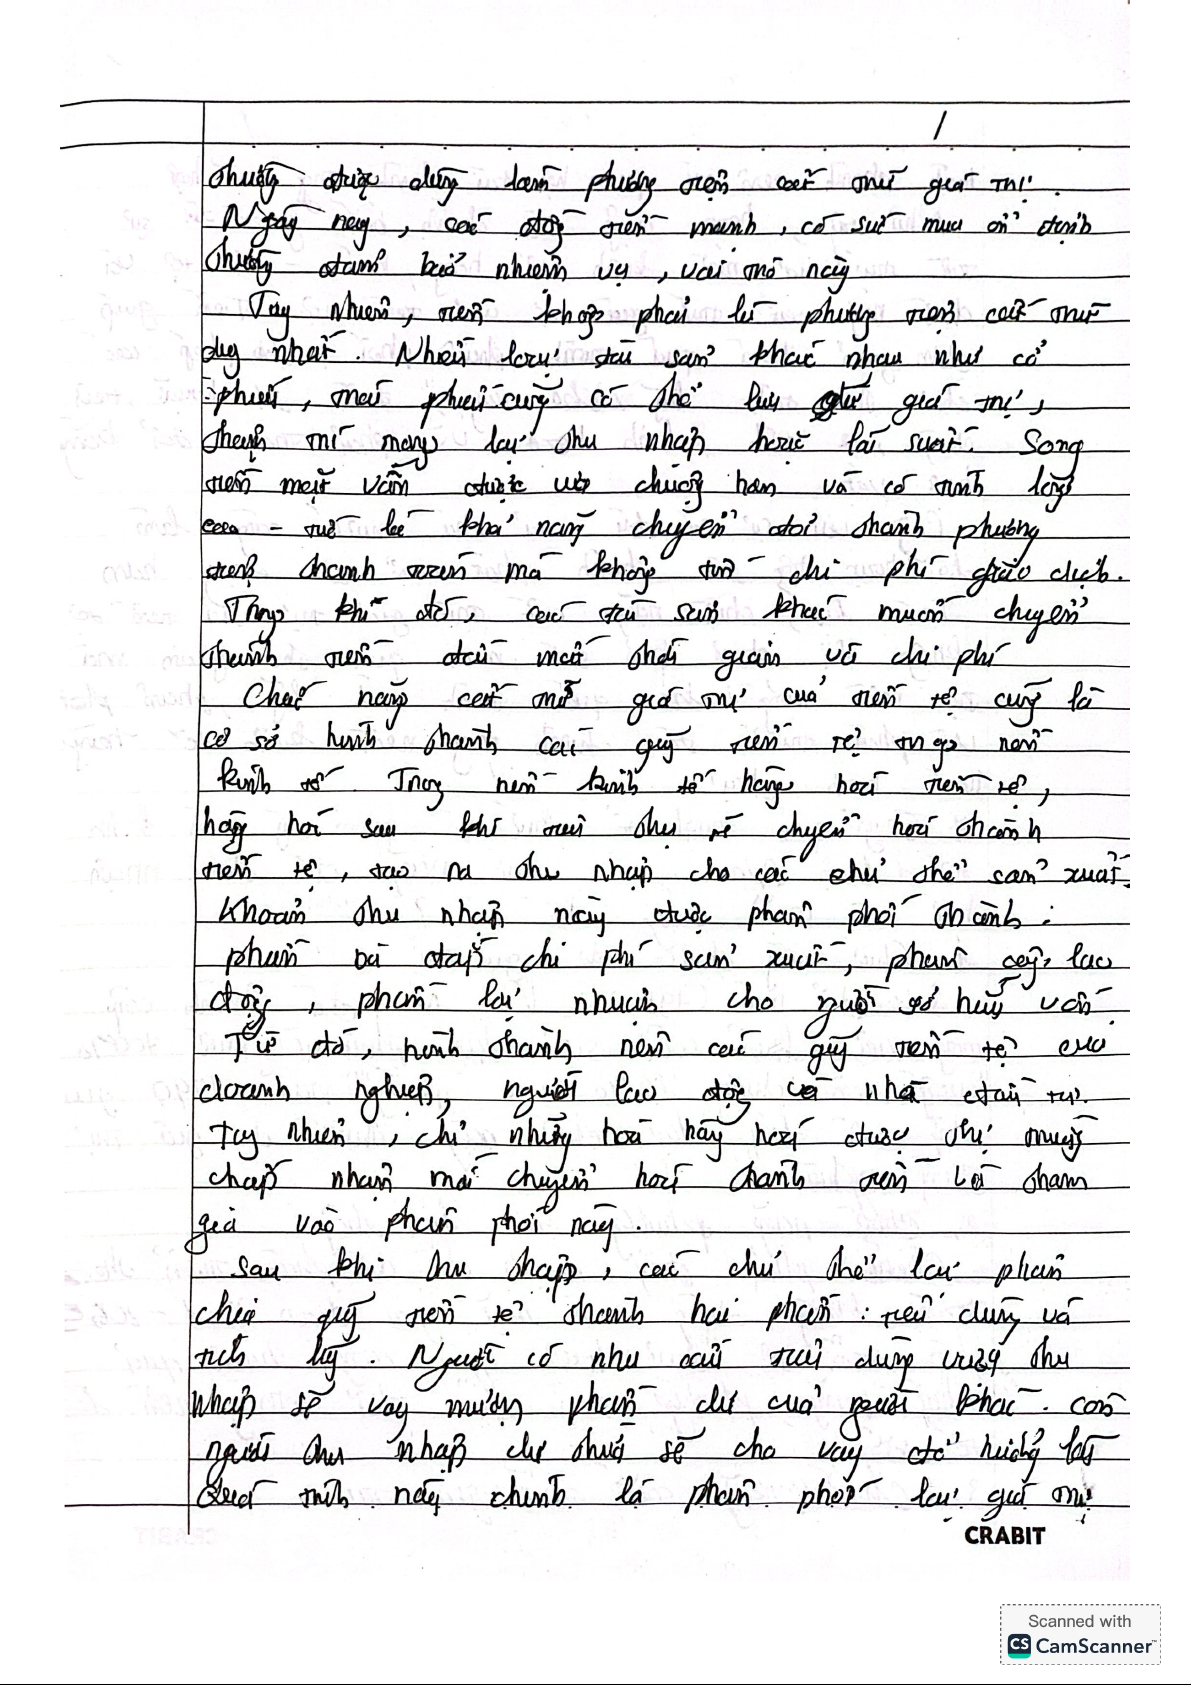 1
thường được dùng làm phương tiện cất trữ giá trị.
Ngày nay, các đồng tiền mạnh, có sức mua ổn định
thường đảm bảo nhiệm vụ, vai trò này
Tuy nhiên, tiền không phải là phương tiện cất trữ
duy nhất. Nhiều loại tài sản khác nhau như cổ
phiếu, trái phiếu cũng có thể lưu giữ giá trị,
thậm chí mang lại thu nhập hoặc lãi suất. Song
tiền mặt vẫn được ưa chuộng hơn vì có tính lỏng
cao - tức là khả năng chuyển đổi thành phương
tiện thanh toán mà không tốn chi phí giao dịch.
Trong khi đó, các tài sản khác muốn chuyển
thành tiền đều mất thời gian và chi phí
Chức năng cất trữ giá trị của tiền tệ cũng là
cơ sở hình thành các quỹ tiền tệ trong nền
kinh tế. Trong nền kinh tế hàng hoá tiền tệ,
hàng hoá sau khi tiêu thụ sẽ chuyển hoá thành
tiền tệ, tạo ra thu nhập cho các chủ thể sản xuất.
Khoản thu nhập này được phân phối thành:
phần bù đắp chi phí sản xuất, phần công lao
động, phần lợi nhuận cho người sở hữu vốn.
Từ đó, hình thành nên các quỹ tiền tệ của
doanh nghiệp, người lao động và nhà đầu tư.
Tuy nhiên, chỉ những hàng hoá được thị trường
chấp nhận mới chuyển hoá thành tiền và tham
gia vào phân phối này.
Sau khi thu nhập, các chủ thể lại phân
chia quỹ tiền tệ thành hai phần: tiêu dùng và
tích luỹ. Người có nhu cầu tiêu dùng vượt thu
nhập sẽ vay mượn phần dư của người khác. Còn
người thu nhập dư thừa sẽ cho vay để hưởng lãi
Quá trình này chính là phân phối lại giá trị
CRABIT
Scanned with
CS CamScanner